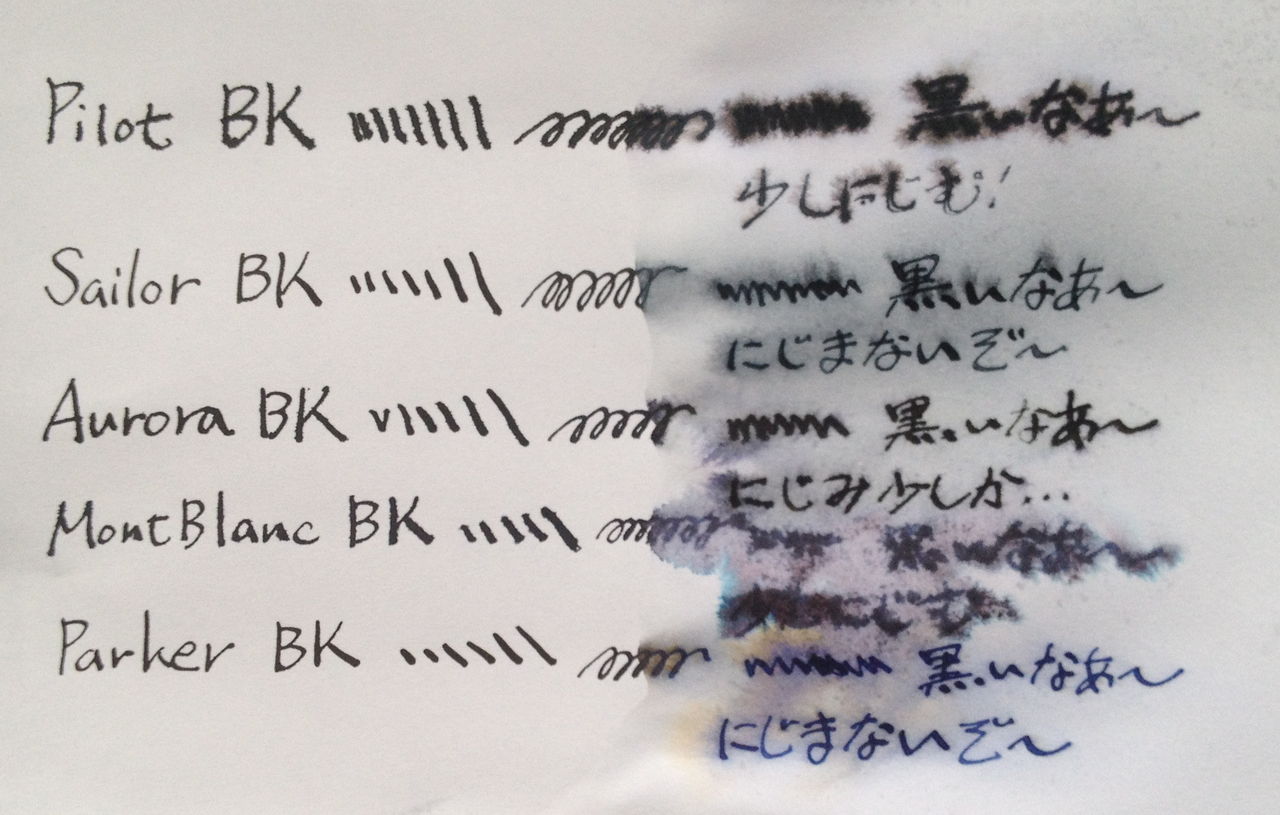 Pilot BK 黒いなあ〜
少しにじむ!
Sailor BK 黒いなあ〜
にじまないぞ〜
Aurora BK 黒いなあ〜
にじみ少しか...
MontBlanc BK 黒いなあ〜
少しにじむ
Parker BK 黒いなあ〜
にじまないぞ〜